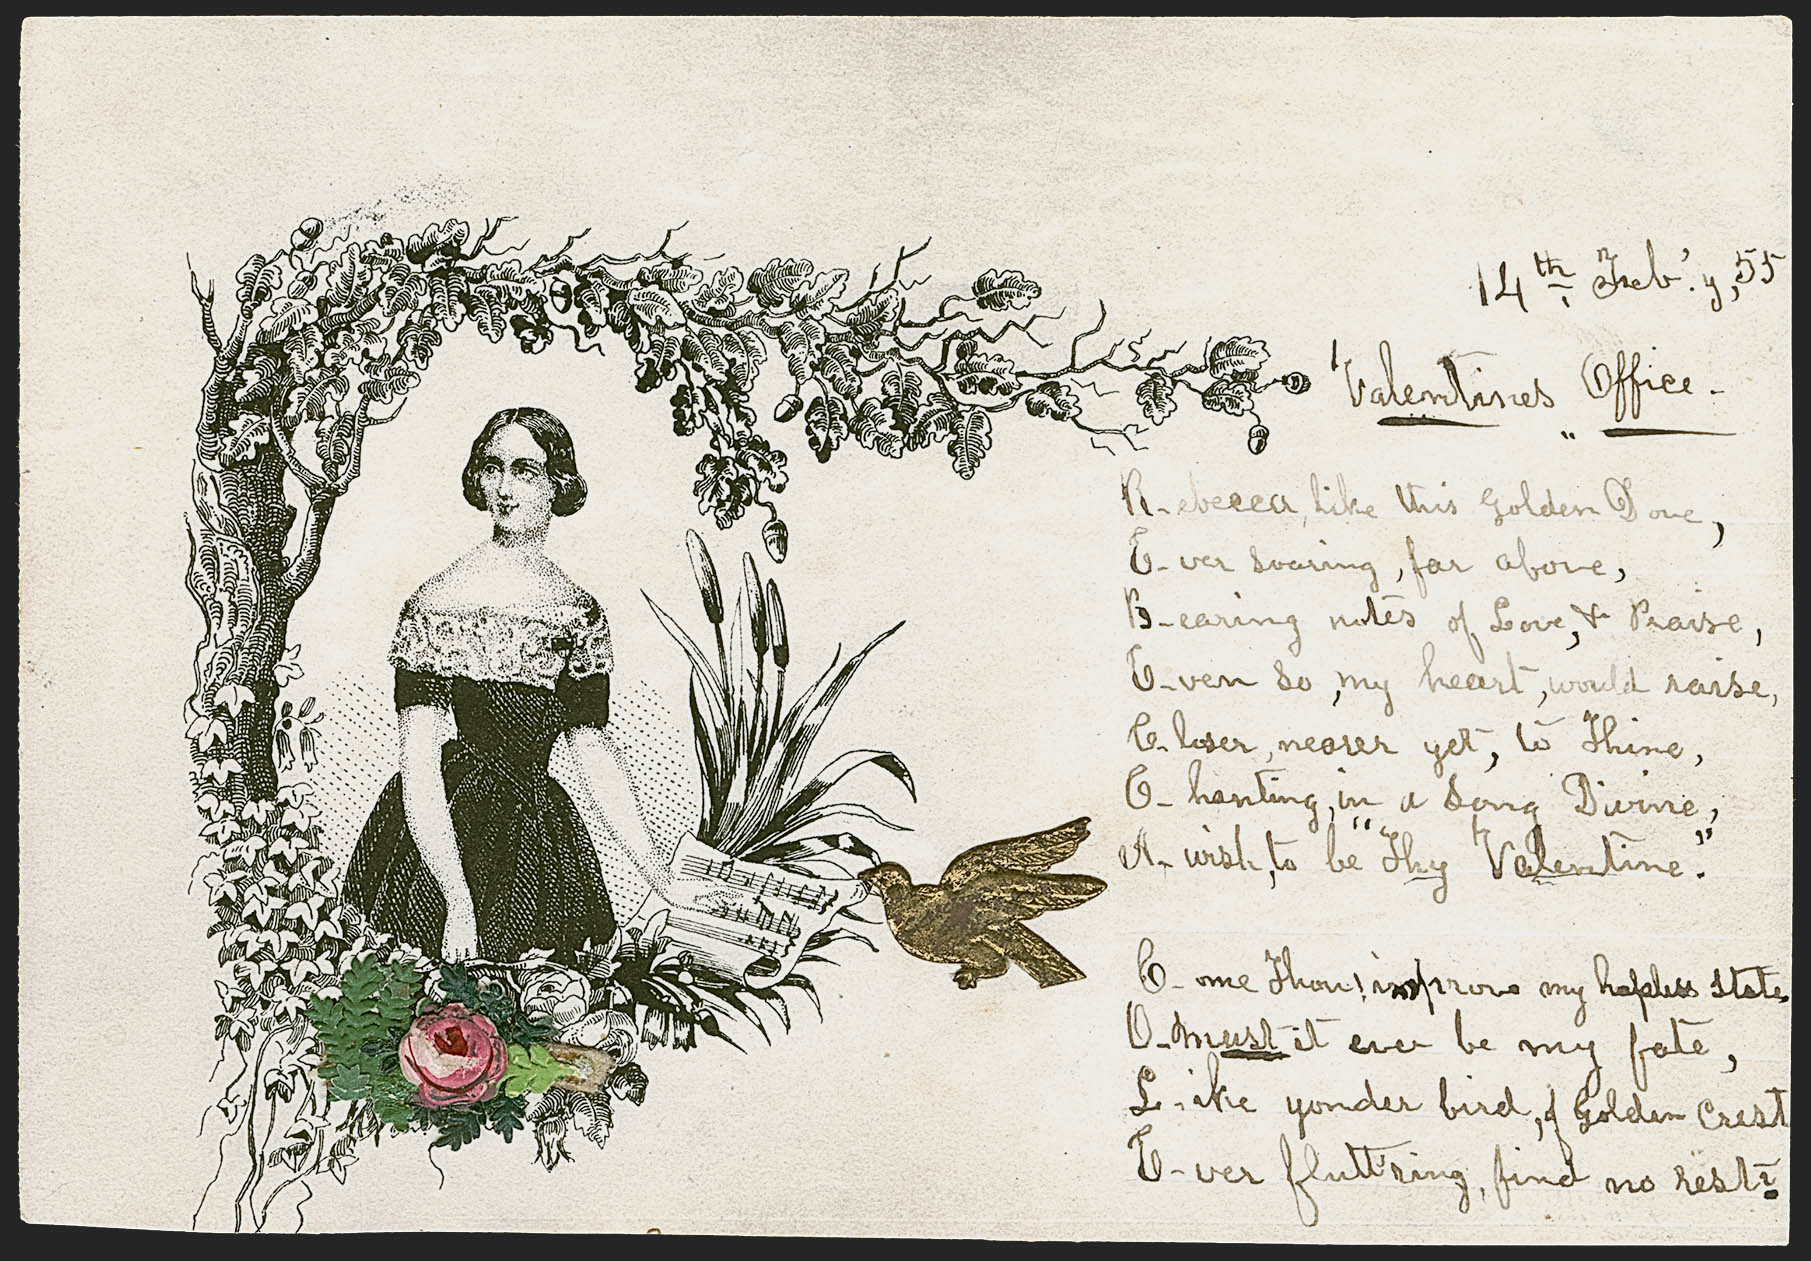 14th Feb'.y, 55
Valentines Office -
R-ebecca, like this Golden Dove,
E-ver soaring, far above,
B-earing notes of Love, & Praise,
E-ven so, my heart, would raise,
C-loser, nearer yet, to Thine,
C-hanting, in a Song Divine,
A- wish, to be "Thy Valentine."
C-ome Thou! improve my hopless state
O-must it ever be my fate,
L-ike yonder bird, of Golden Crest
E-ver flutt'ring, find no rest?